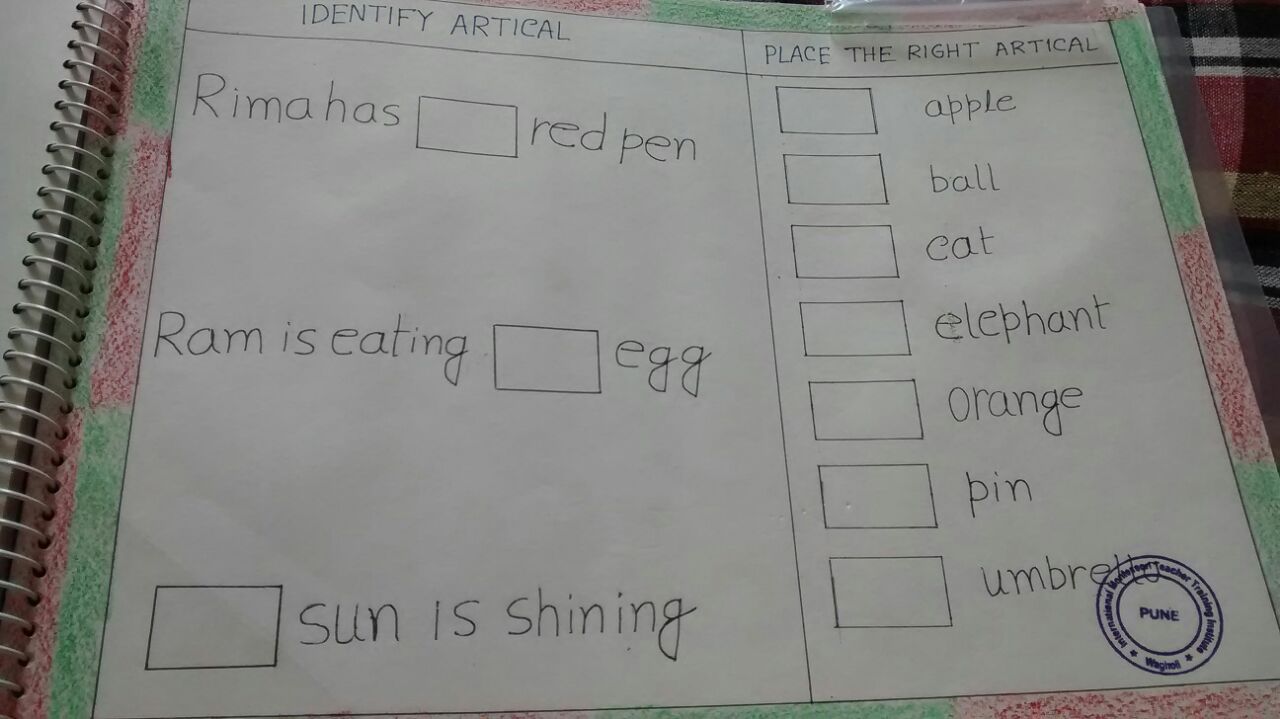 IDENTIFY ARTICAL
Rima has red pen
Ram is eating egg
sun is shining
PLACE THE RIGHT ARTICAL
apple
ball
cat
elephant
orange
pin
umbrella
International Montessori Teacher Training Institute
PUNE
Wagholi